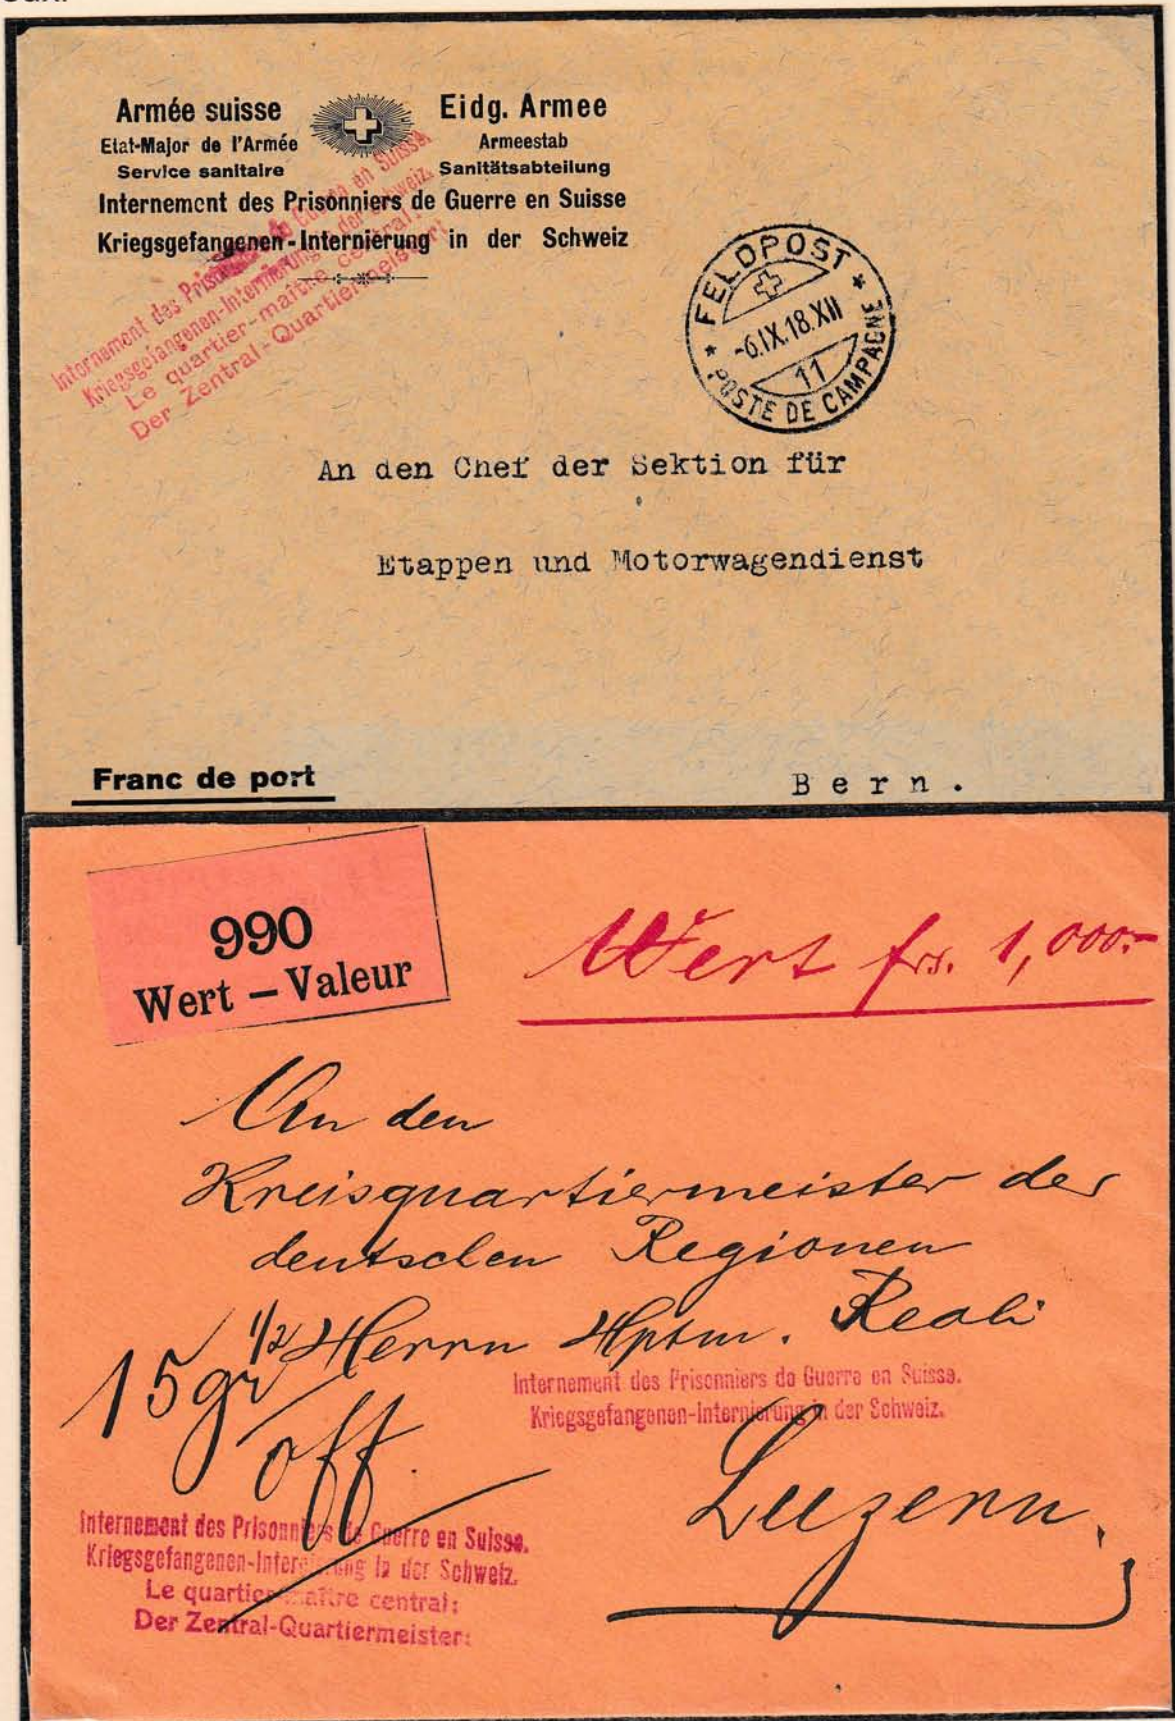 Armée suisse
Etat-Major de l'Armée
Service sanitaire
Eidg. Armee
Armeestab
Sanitätsabteilung
Internement des Prisonniers de Guerre en Suisse
Kriegsgefangenen-Internierung in der Schweiz
Internement des Prisonniers de Guerre en Suisse.
Kriegsgefangenen-Internierung in der Schweiz.
Le quartier-maître central:
Der Zentral-Quartiermeister:
* FELDPOST *
-6.IX.18.XII
11
POSTE DE CAMPAGNE
An den Chef der Sektion für
Etappen und Motorwagendienst
Franc de port
Bern.
990
Wert – Valeur
Wert frs. 1,000.-
An den
Kreisquartiermeister der
deutschen Regionen
Herrn Hptm. Reali
15 1/2 gr
off.
Internement des Prisonniers de Guerre en Suisse.
Kriegsgefangenen-Internierung in der Schweiz.
Luzern.
Internement des Prisonniers de Guerre en Suisse.
Kriegsgefangenen-Internierung in der Schweiz.
Le quartier-maître central:
Der Zentral-Quartiermeister: